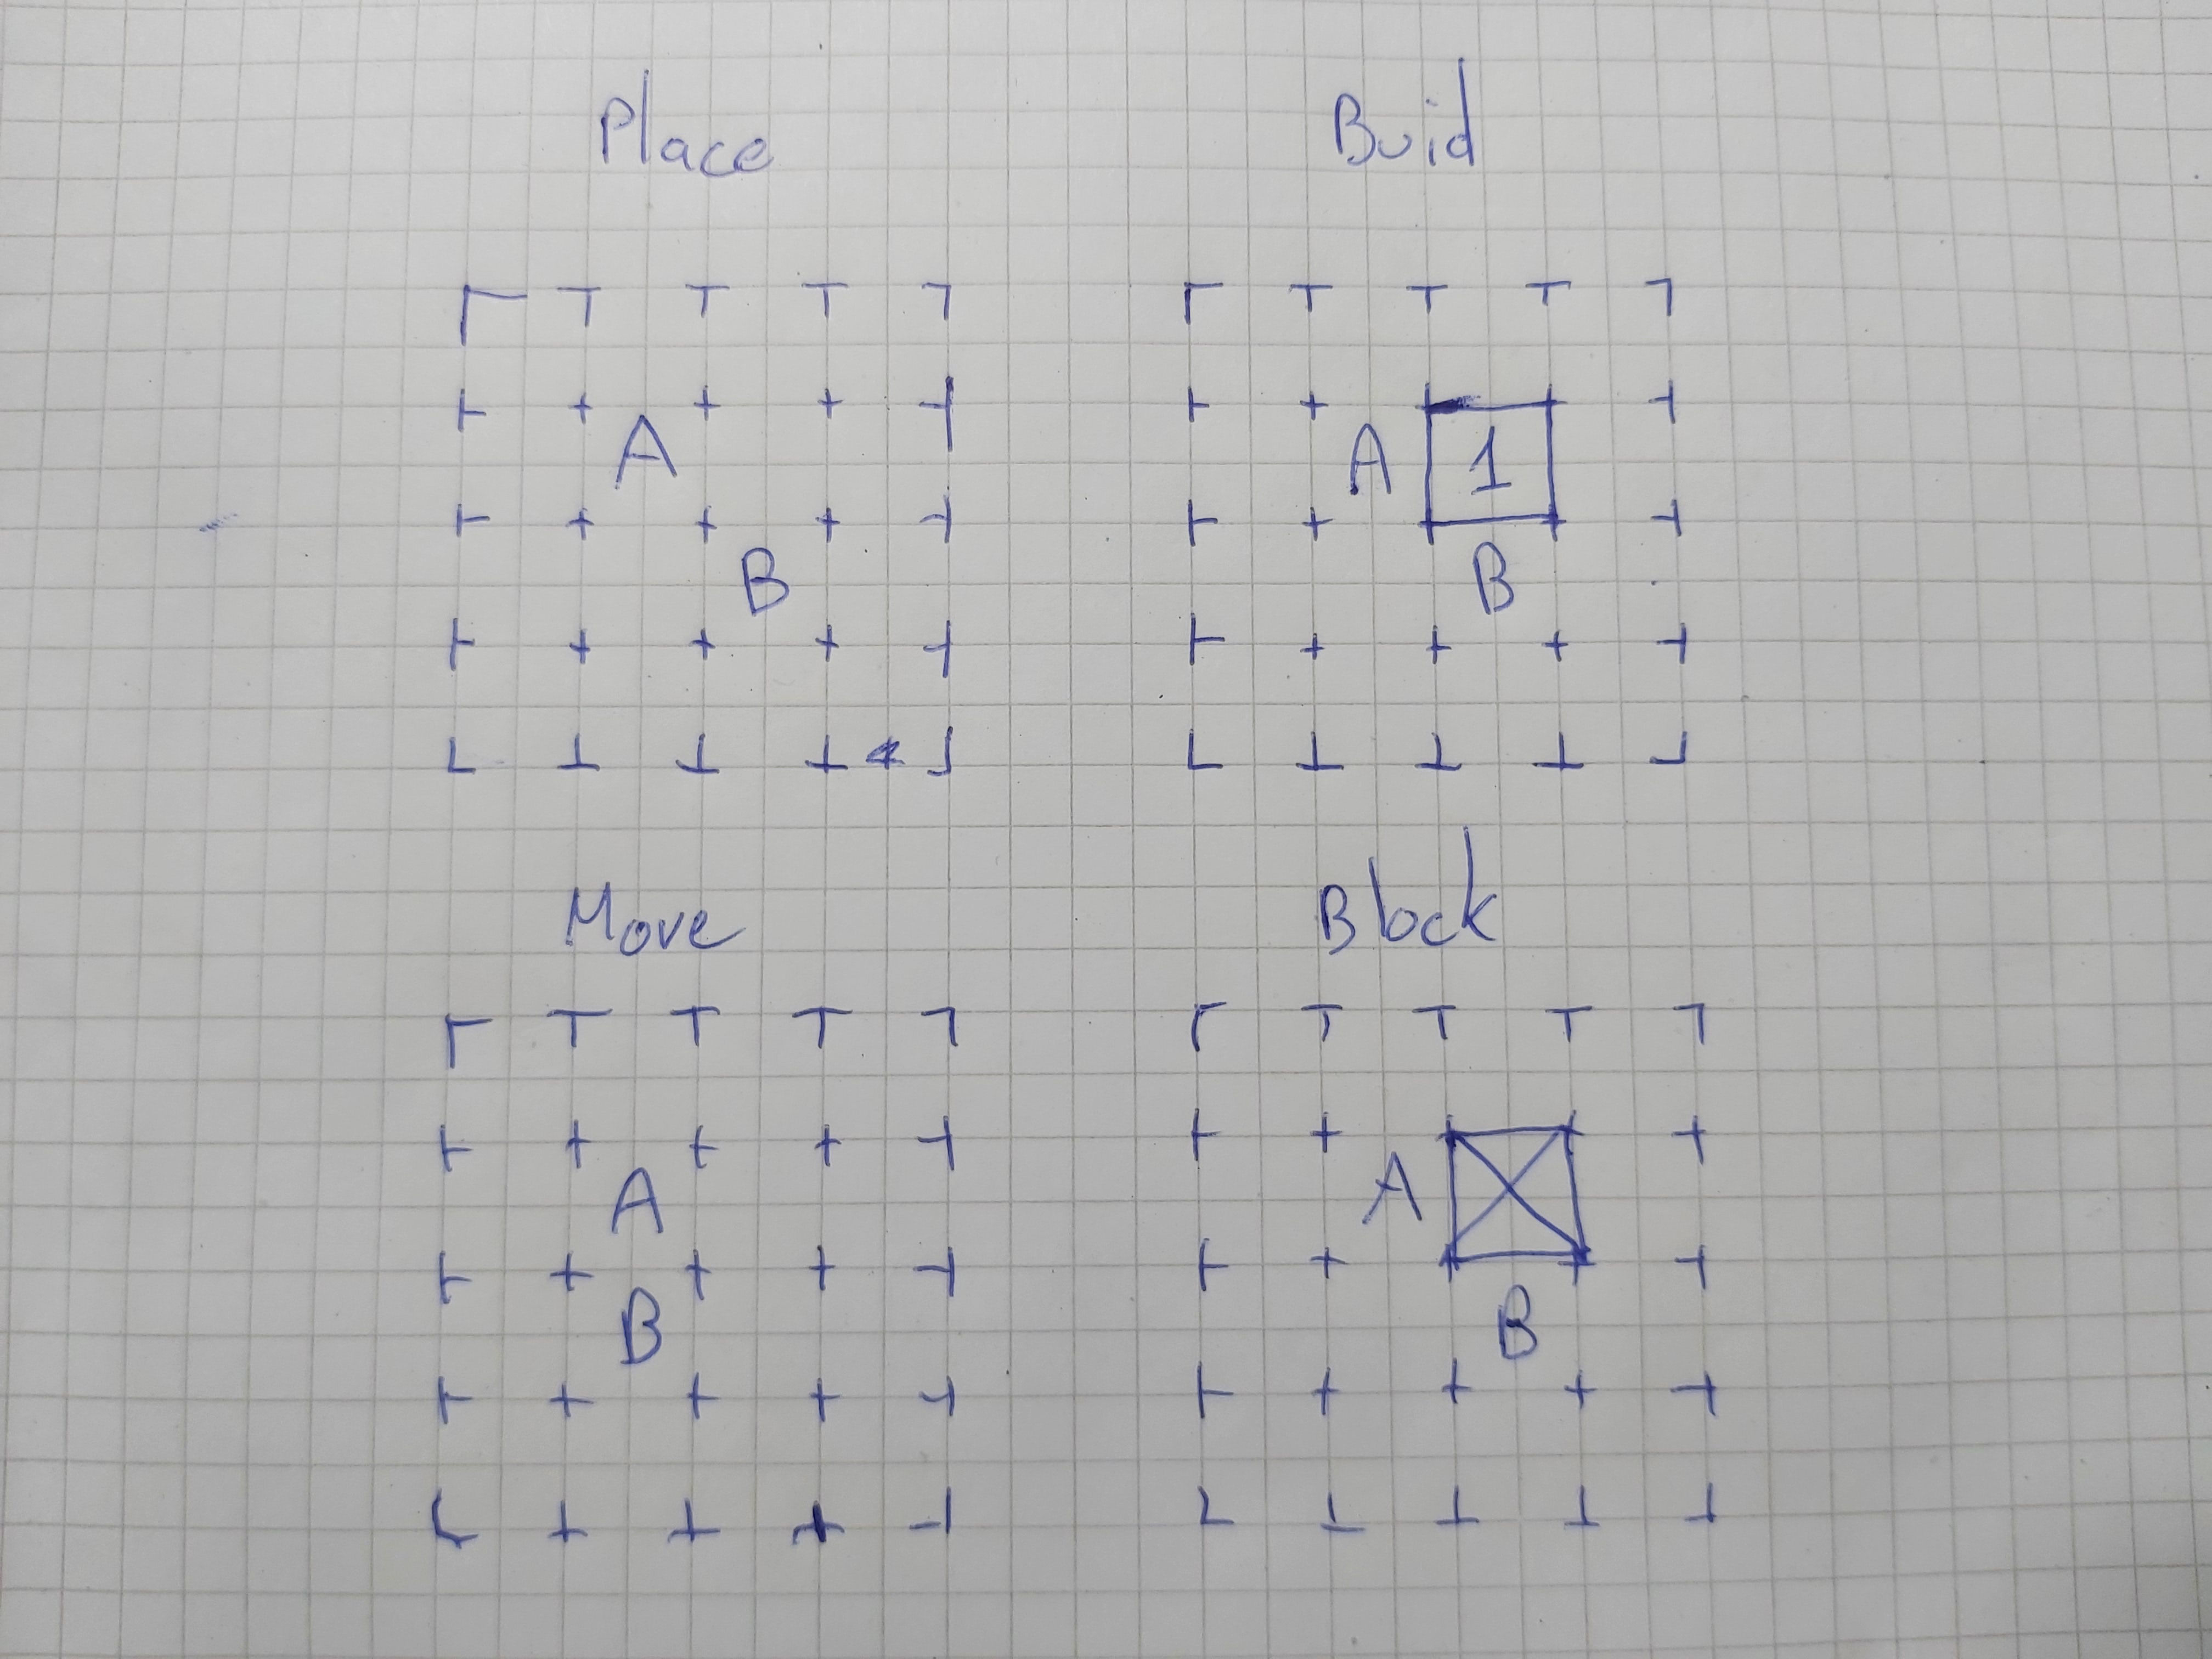 Place
A
B
Buid
A 1
B
Move
A
B
Block
A
B